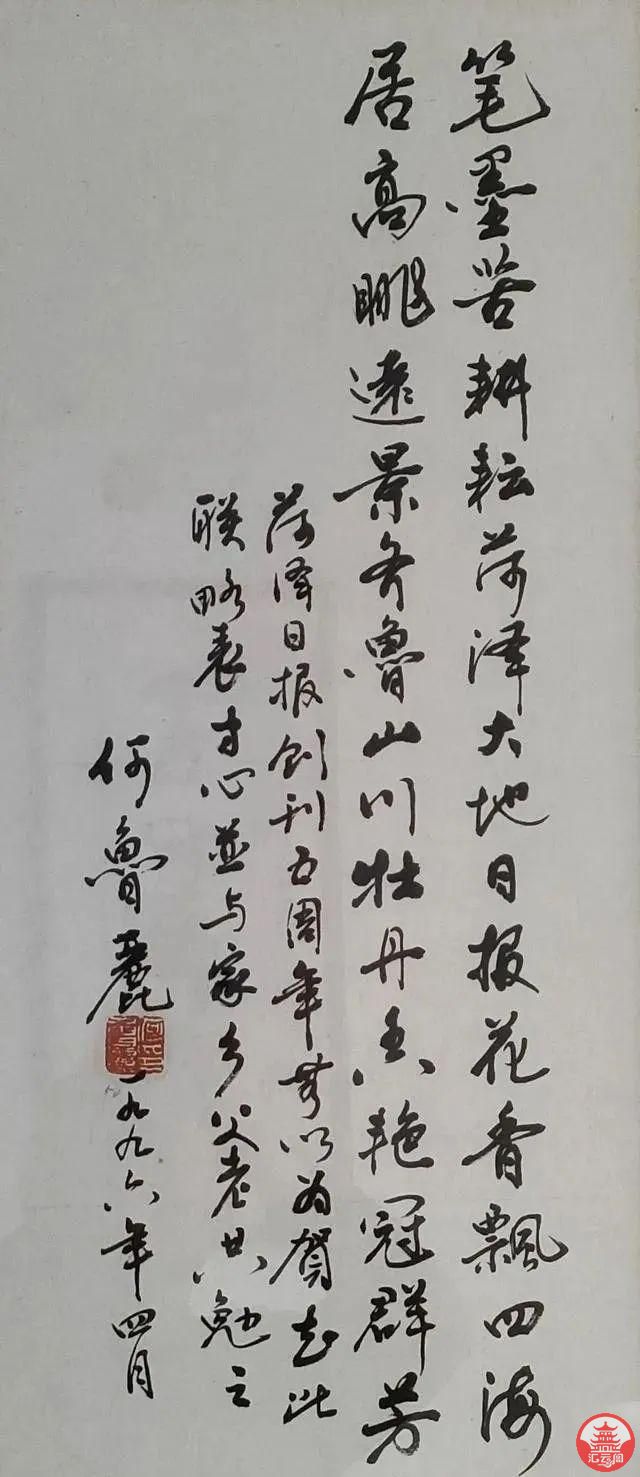 笔墨苦耕耘菏泽大地日报花香飘四海
居高眺遠景齐魯山川牡丹艳冠群芳
菏泽日报创刊五周年無以为賀书此
联略表寸心並与家乡父老共勉之
何魯麗
一九九六年四月
汇云阁